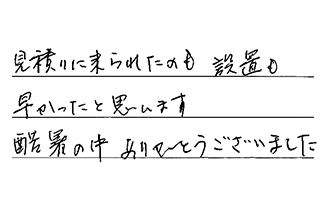 見積りに来られたのも 設置も
早かったと思います
酷暑の中 ありがとうございました